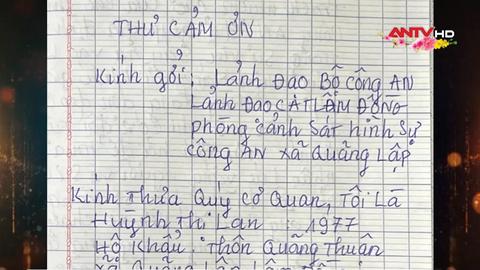 ANTV HD
THƯ CẢM ƠN
Kính gởi: Lảnh Đạo Bộ Công AN
Lảnh Đạo CATLÂM ĐỒNG
phòng cảnh sát hình sự
công AN xã Quảng Lập
Kính thưa Quý cơ quan, Tôi Là
Huỳnh Thị Lan : 1977
Hộ Khẩu: Thôn Quảng Thuận
xã Quảng Lập